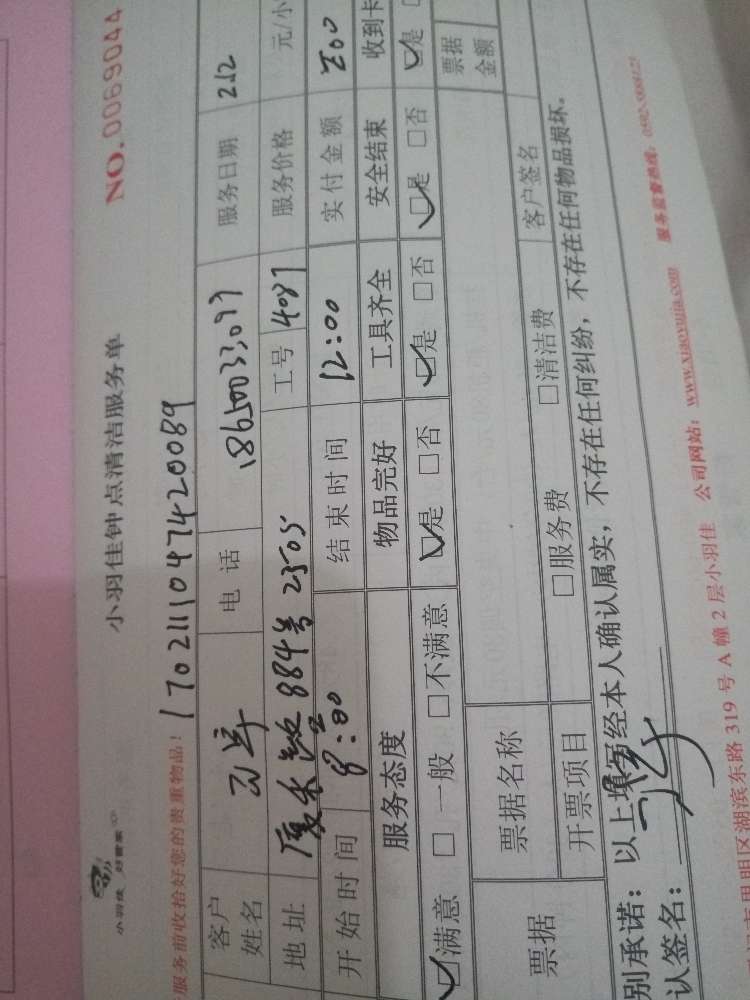 小羽佳 好管家
小羽佳钟点清洁服务单
NO.0069044
服务前收拾好您的贵重物品! 1702111047420089
客户姓名 电话 18650033077 服务日期 212
地址 884号 2505 工号 4087 服务价格 元/小
开始时间 8:00 结束时间 12:00 实付金额 200
服务态度 物品完好 工具齐全 安全结束 收到卡
☑满意 □一般 □不满意 ☑是 □否 ☑是 □否 ☑是 □否 ☑是
票据 票据名称 票据金额
开票项目 □服务费 □清洁费 客户签名
别承诺:以上填写经本人确认属实,不存在任何纠纷,不存在任何物品损坏。
认签名:
市思明区湖滨东路 319 号 A 幢 2 层小羽佳 公司网站:www.xiaoyujia.com 服务监督热线: